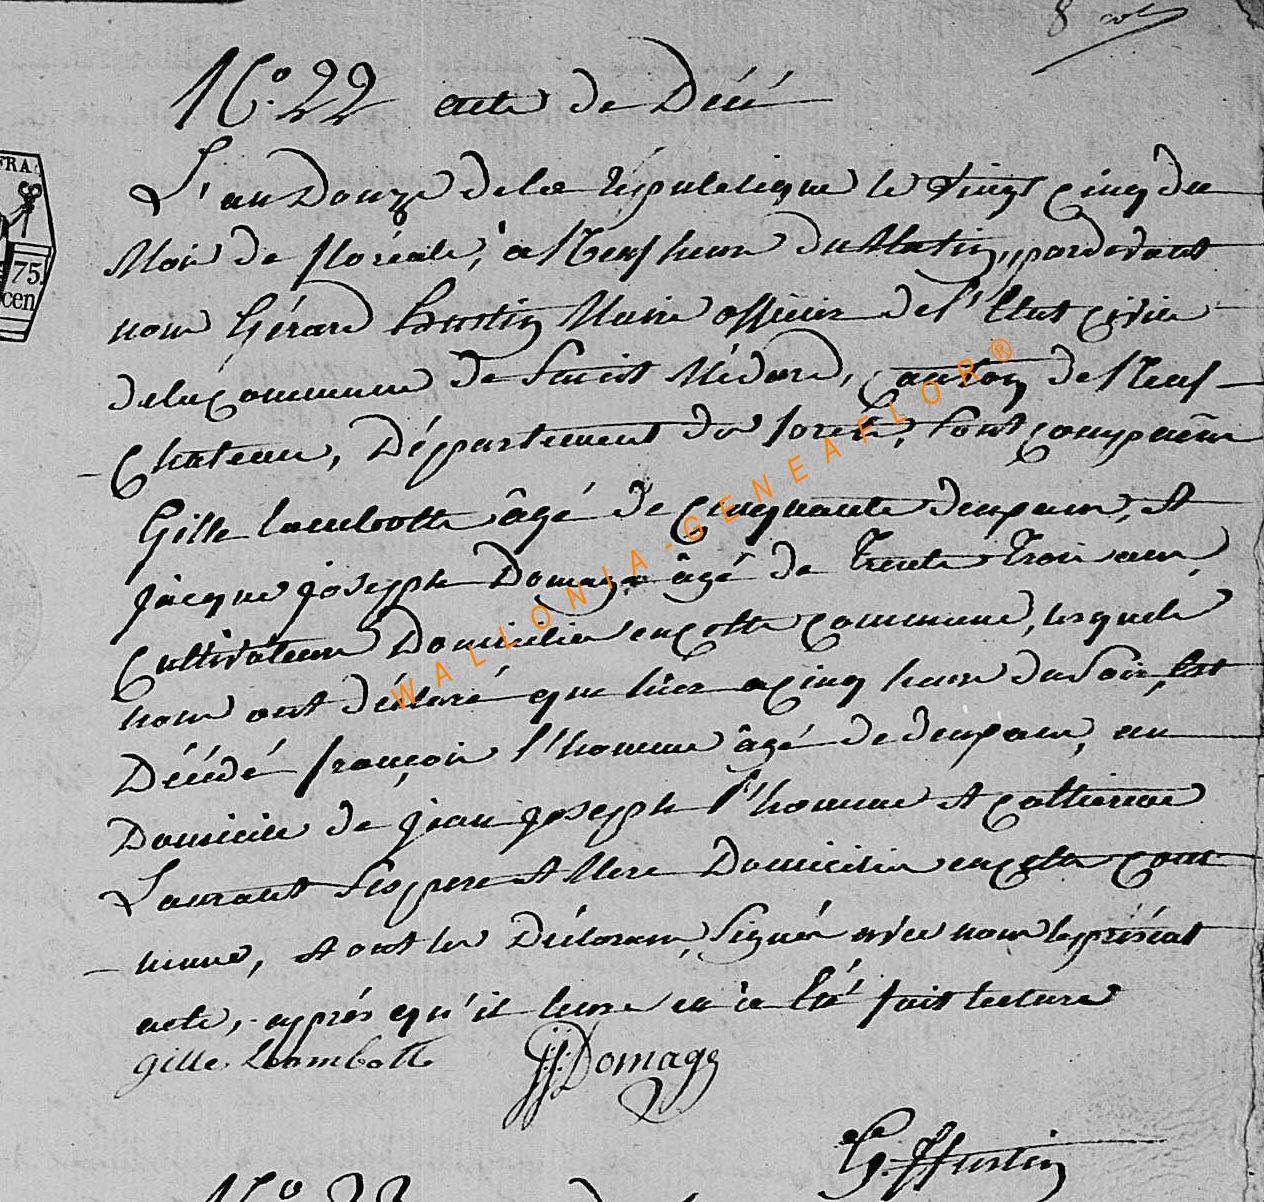 8 vol
N.o 22 acte de Décé
L'an Douze de la république le vingt cinq du
Mois de floréale, à Neuf heure du Matin, pardevant
nous Gérard Hustin Maire officier de l'Etat civile
de la commune de Saint Médard, canton de Neuf
Chateau, Département du forêt, sont comparûs
Gille Lambotte âgé de Cinquante deux ans, et
jacque joseph Domage âgé de Trente Trois ans,
Cultivateurs Domicilies en cette commune, lesquels
nous ont déclaré que hier a cinq heure du Soir, Est
Décédé françois l'homme âgé de deux ans, au
Domicile de jean joseph l'homme et Catherine
Laurant Ses pere et Mere Domicilies en cette com
mune, et ont les Déclarans, Signés avec nous le présent
acte, apprés qu'il leure en a Eté fait lecture
gille Lambotte J:J: Domage
G. Hustin
N.o 23
FRA
75.
cen
WALLONIA-GENEAFLOR®